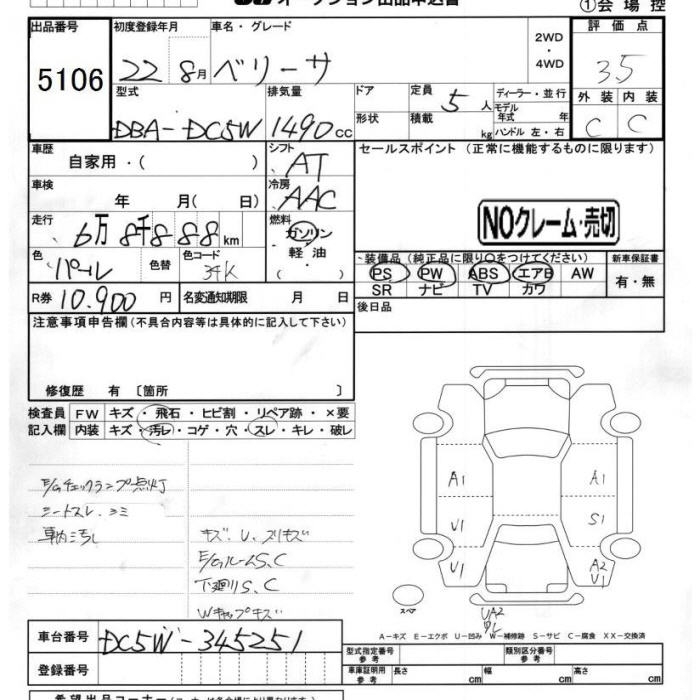 オークション出品申込書
①会場控
出品番号 初度登録年月 車名・グレード 評価点
5106 22 8月 ベリーサ 2WD・4WD 3.5
型式 排気量 ドア 定員 5人 ディーラー・並行 外装 内装
DBA-DC5W 1490cc 形状 積載 kg モデル年式 年 C C
ハンドル 左・右
車歴 シフト セールスポイント (正常に機能するものに限ります)
自家用・( ) AT
車検 冷房
年 月( 日) AAC
NOクレーム・売切
走行 燃料
6万8千888km ガソリン・軽油
装備品 (純正品に限り○をつけてください) 新車保証書
色 パール 色替 色コード 34K PS PW ABS エアB AW 有・無
SR ナビ TV カワ
R券 10.900円 名変通知期限 月 日 後日品
注意事項申告欄(不具合内容等は具体的に記入して下さい)
修復歴 有 〔箇所 〕
検査員 FW キズ・飛石・ヒビ割・リペア跡・×要
記入欄 内装 キズ・汚レ・コゲ・穴・スレ・キレ・破レ
E/Gチェックランプ点灯
シートスレ.シミ
車内汚レ
キズ.U.スリキズ
E/GルームS.C
下廻りS.C
Wキャップキズ
A1 A1
U1 S1
U1 A2
U1
スペア
UA2
ワレ
A-キズ E-エクボ U-凹み W-補修跡 S-サビ C-腐食 XX-交換済
車台番号 DC5W-345251
登録番号
型式指定番号 参考 類別区分番号 参考
車庫証明用 参考 長さ cm 幅 cm 高さ cm
希望出品コーナー